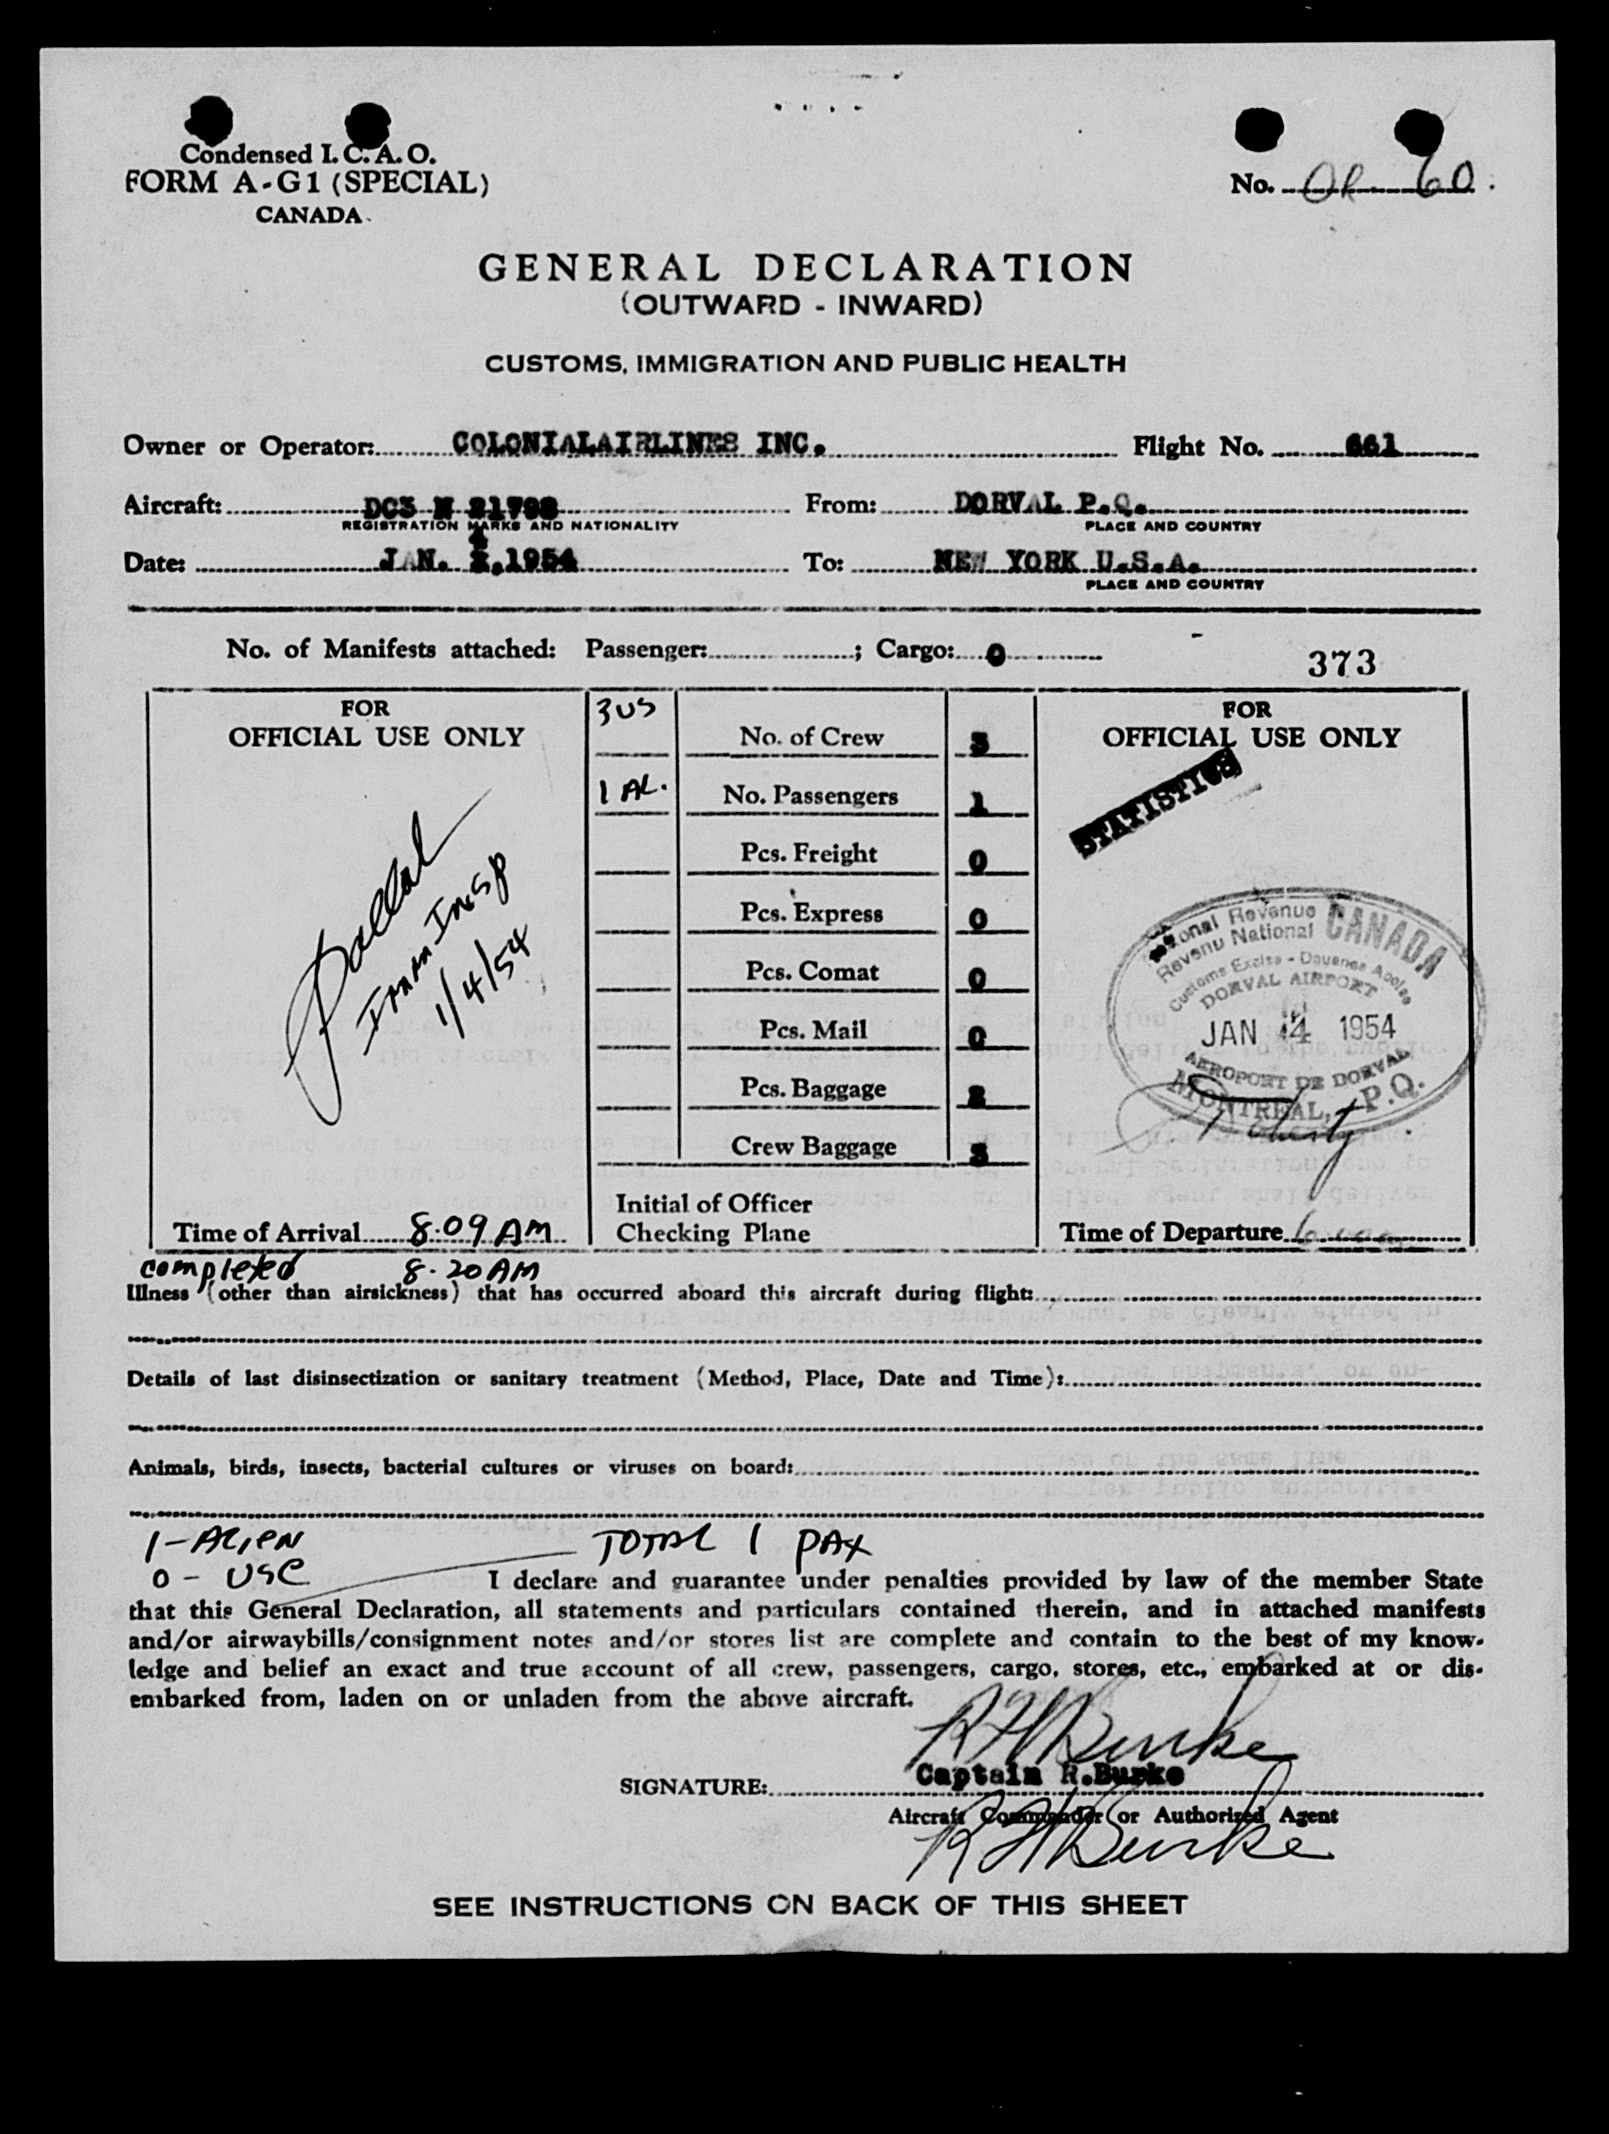 Condensed I. C. A. O.
FORM A-G1 (SPECIAL)
CANADA
No. 60
GENERAL DECLARATION
(OUTWARD - INWARD)
CUSTOMS, IMMIGRATION AND PUBLIC HEALTH
Owner or Operator: COLONIALAIRLINES INC. Flight No. 661
Aircraft: DC3 N 21798 From: DORVAL P.Q.
REGISTRATION MARKS AND NATIONALITY PLACE AND COUNTRY
Date: JAN. 4,1954 To: NEW YORK U.S.A.
PLACE AND COUNTRY
No. of Manifests attached: Passenger: ; Cargo: 0
373
FOR
OFFICIAL USE ONLY
Imm Insp
1/4/54
Time of Arrival 8:09 AM
3 US No. of Crew 3
1 AL. No. Passengers 1
Pcs. Freight 0
Pcs. Express 0
Pcs. Comat 0
Pcs. Mail 0
Pcs. Baggage 2
Crew Baggage 3
Initial of Officer
Checking Plane
FOR
OFFICIAL USE ONLY
STATISTICS
National Revenue CANADA
Revenu National
Customs Excise - Douanes Accise
DORVAL AIRPORT
JAN 4 1954
AEROPORT DE DORVAL
MONTREAL, P.Q.
Time of Departure
completed 8:20 AM
Illness (other than airsickness) that has occurred aboard this aircraft during flight:
Details of last disinsectization or sanitary treatment (Method, Place, Date and Time):
Animals, birds, insects, bacterial cultures or viruses on board:
1 - ALIEN TOTAL 1 PAX
0 - USC
I declare and guarantee under penalties provided by law of the member State
that this General Declaration, all statements and particulars contained therein, and in attached manifests
and/or airwaybills/consignment notes and/or stores list are complete and contain to the best of my know-
ledge and belief an exact and true account of all crew, passengers, cargo, stores, etc., embarked at or dis-
embarked from, laden on or unladen from the above aircraft.
R H Burke
SIGNATURE: Captain R.Burke
Aircraft Commander or Authorized Agent
R H Burke
SEE INSTRUCTIONS ON BACK OF THIS SHEET